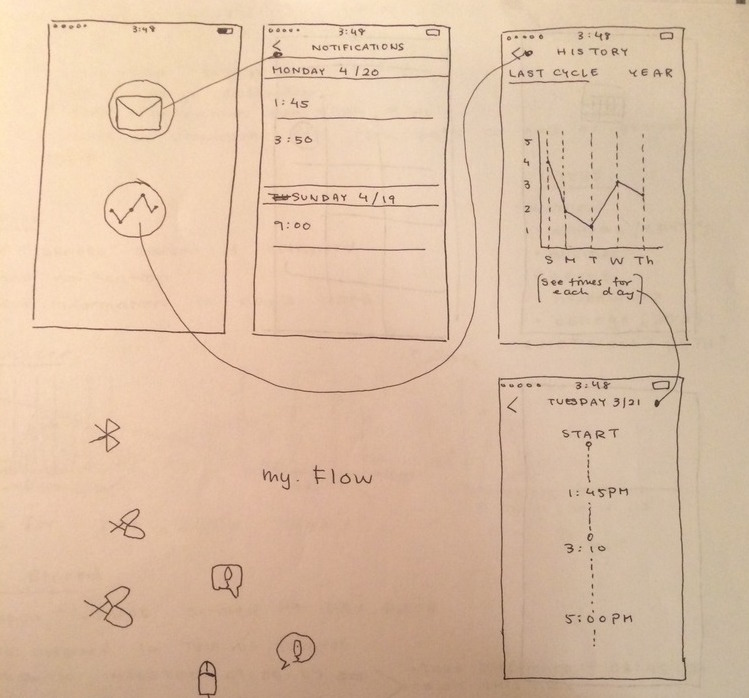 3:48
3:48
NOTIFICATIONS
MONDAY 4/20
1:45
3:50
SUNDAY 4/19
9:00
3:48
HISTORY
LAST CYCLE YEAR
5
4
3
2
1
S M T W Th
[See times for
each day]
3:48
TUESDAY 3/21
START
1:45PM
3:10
5:00PM
my. Flow